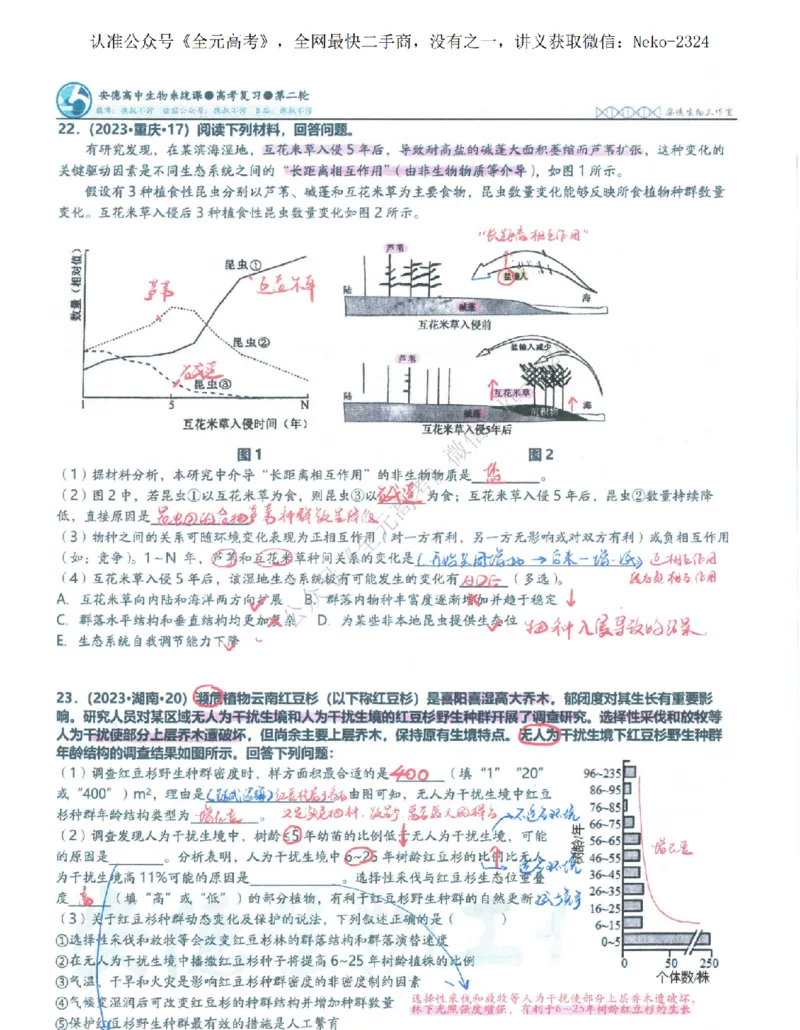 认准公众号《全元高考》，全网最快二手商，没有之一，讲义获取微信：Neko-2324
安德高中生物系统课●高考复习●第二轮
安德生物工作室
22.（2023•重庆•17）阅读下列材料，回答问题。
有研究发现，在某滨海湿地，互花米草入侵 5 年后，导致耐高盐的碱蓬大面积萎缩而芦苇扩张，这种变化的
关键驱动因素是不同生态系统之间的“长距离相互作用”（由非生物物质等介导），如图 1 所示。
假设有 3 种植食性昆虫分别以芦苇、碱蓬和互花米草为主要食物，昆虫数量变化能够反映所食植物种群数量
变化。互花米草入侵后 3 种植食性昆虫数量变化如图 2 所示。
“长距离相互作用”
数量（相对值）
昆虫①
互花米草
芦苇
昆虫②
碱蓬
昆虫③
1 5 N
互花米草入侵时间（年）
图 1
芦苇
盐输入
陆
碱蓬
海
互花米草入侵前
芦苇
盐输入减少
互花米草
陆
碱蓬
沉积物
海
互花米草入侵5年后
图 2
（1）据材料分析，本研究中介导“长距离相互作用”的非生物物质是 盐 。
（2）图 2 中，若昆虫①以互花米草为食，则昆虫③以 碱蓬 为食；互花米草入侵 5 年后，昆虫②数量持续降
低，直接原因是 昆虫②的食物芦苇种群数量降低
（3）物种之间的关系可随环境变化表现为正相互作用（对一方有利，另一方无影响或对双方有利）或负相互作用
（如：竞争）。1~N 年，芦苇和互花米草种间关系的变化是 （开始共同增加→后来一增一减）正相互作用
（4）互花米草入侵 5 年后，该湿地生态系统极有可能发生的变化有 ADE （多选）。
变为负相互作用
A．互花米草向内陆和海洋两方向扩展 B．群落内物种丰富度逐渐增加并趋于稳定 ↓
C．群落水平结构和垂直结构均更加复杂 D．为某些非本地昆虫提供生态位 物种入侵导致的结果
E．生态系统自我调节能力下降
23.（2023•湖南•20）濒危植物云南红豆杉（以下称红豆杉）是喜阳喜湿高大乔木，郁闭度对其生长有重要影
响。研究人员对某区域无人为干扰生境和人为干扰生境的红豆杉野生种群开展了调查研究。选择性采伐和放牧等
人为干扰使部分上层乔木遭破坏，但尚余主要上层乔木，保持原有生境特点。无人为干扰生境下红豆杉野生种群
年龄结构的调查结果如图所示。回答下列问题：
（1）调查红豆杉野生种群密度时，样方面积最合适的是 400 （填“1”“20”
或“400”）m²，理由是
由图可知，无人为干扰生境中红豆
杉种群年龄结构类型为 增长型 。
（2）调查发现人为干扰生境中，树龄≤5 年幼苗的比例低于无人为干扰生境，可能
的原因是 。分析表明，人为干扰生境中 6~25 年树龄红豆杉的比例比无人
为干扰生境高 11%可能的原因是 。选择性采伐与红豆杉生态位重叠
度 高 （填“高”或“低”）的部分植物，有利于红豆杉野生种群的自然更新
（3）关于红豆杉种群动态变化及保护的说法，下列叙述正确的是（ ）
①选择性采伐和放牧等会改变红豆杉林的群落结构和群落演替速度
②在无人为干扰生境中播撒红豆杉种子将提高 6~25 年树龄植株的比例
③气温、干旱和火灾是影响红豆杉种群密度的非密度制约因素
④气候变湿润后可改变红豆杉的种群结构并增加种群数量
⑤保护红豆杉野生种群最有效的措施是人工繁育
树龄/年
96~235
86~95
76~85
66~75
56~65
46~55
36~45
26~35
16~25
6~15
0~5
0 50 250
个体数/株
增长型
选择性采伐和放牧等人为干扰使部分上层乔木遭破坏，
林下光照强度增强，有利于6~25年树龄红豆杉的生长